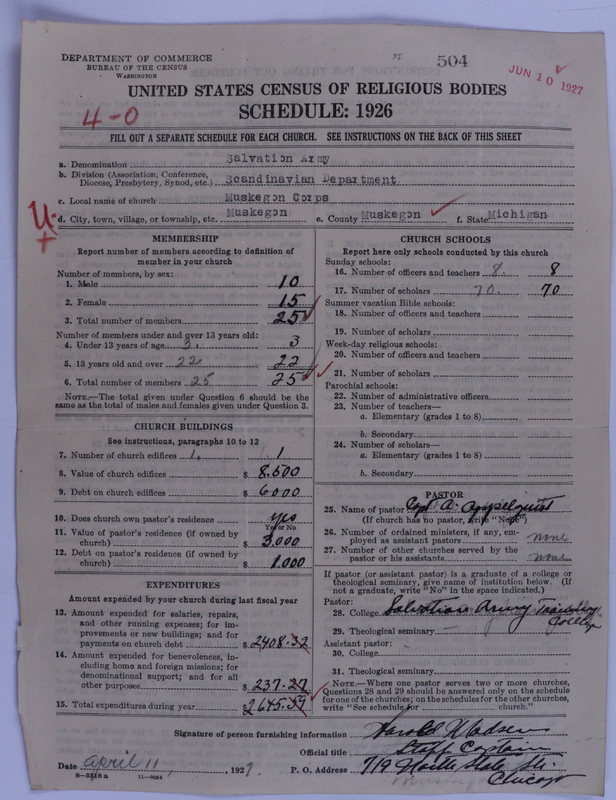 DEPARTMENT OF COMMERCE
BUREAU OF THE CENSUS
WASHINGTON
504
JUN 10 1927
UNITED STATES CENSUS OF RELIGIOUS BODIES
SCHEDULE: 1926
4-0
FILL OUT A SEPARATE SCHEDULE FOR EACH CHURCH. SEE INSTRUCTIONS ON THE BACK OF THIS SHEET
a. Denomination Salvation Army
b. Division (Association, Conference, Diocese, Presbytery, Synod, etc.) Scandinavian Department
c. Local name of church Muskegon Corps
d. City, town, village, or township, etc. Muskegon e. County Muskegon f. State Michigan
MEMBERSHIP
Report number of members according to definition of
member in your church
Number of members, by sex:
1. Male 10
2. Female 15
3. Total number of members 25
Number of members under and over 13 years old:
4. Under 13 years of age 3. 3
5. 13 years old and over 22 22
6. Total number of members 25 25
NOTE.—The total given under Question 6 should be
same as the total of males and females given under Question 3.
CHURCH BUILDINGS
See instructions, paragraphs 10 to 12
7. Number of church edifices 1. 1
8. Value of church edifices $ 8.500
9. Debt on church edifices $ 6000
10. Does church own pastor's residence yes
Yes or No
11. Value of pastor's residence (if owned by
church) $ 3.000
12. Debt on pastor's residence (if owned by
church) $ 1.000
EXPENDITURES
Amount expended by your church during last fiscal year
13. Amount expended for salaries, repairs,
and other running expenses; for im-
provements or new buildings; and for
payments on church debt $ 2408.32
14. Amount expended for benevolences, in-
cluding home and foreign missions; for
denominational support; and for all
other purposes $ 237.27
15. Total expenditures during year $ 2645.59
CHURCH SCHOOLS
Report here only schools conducted by this church
Sunday schools:
16. Number of officers and teachers 8. 8
17. Number of scholars 70. 70
Summer vacation Bible schools:
18. Number of officers and teachers
19. Number of scholars
Week-day religious schools:
20. Number of officers and teachers
21. Number of scholars
Parochial schools:
22. Number of administrative officers
23. Number of teachers—
a. Elementary (grades 1 to 8)
b. Secondary
24. Number of scholars—
a. Elementary (grades 1 to 8)
b. Secondary
PASTOR
25. Name of pastor Capt. A.
(If church has no pastor, write "No")
26. Number of ordained ministers, if any, em-
ployed as assistant pastors none
27. Number of other churches served by the
pastor or his assistants none
If pastor (or assistant pastor) is a graduate of a college or
theological seminary, give name of institution below. (If
not a graduate, write "No" in the space indicated.)
Pastor:
28. College Salvation Army Training
College
29. Theological seminary
Assistant pastor:
30. College
31. Theological seminary
NOTE.—Where one pastor serves two or more churches,
Questions 28 and 29 should be answered only on the schedule
for one of the churches; on the schedules for the other churches,
write "See schedule for church."
Signature of person furnishing information Harold Madsen
Official title Staff Captain
Date April 11, 1927. P. O. Address 719 North State Str.
Chicago
8-3518a 11-9054